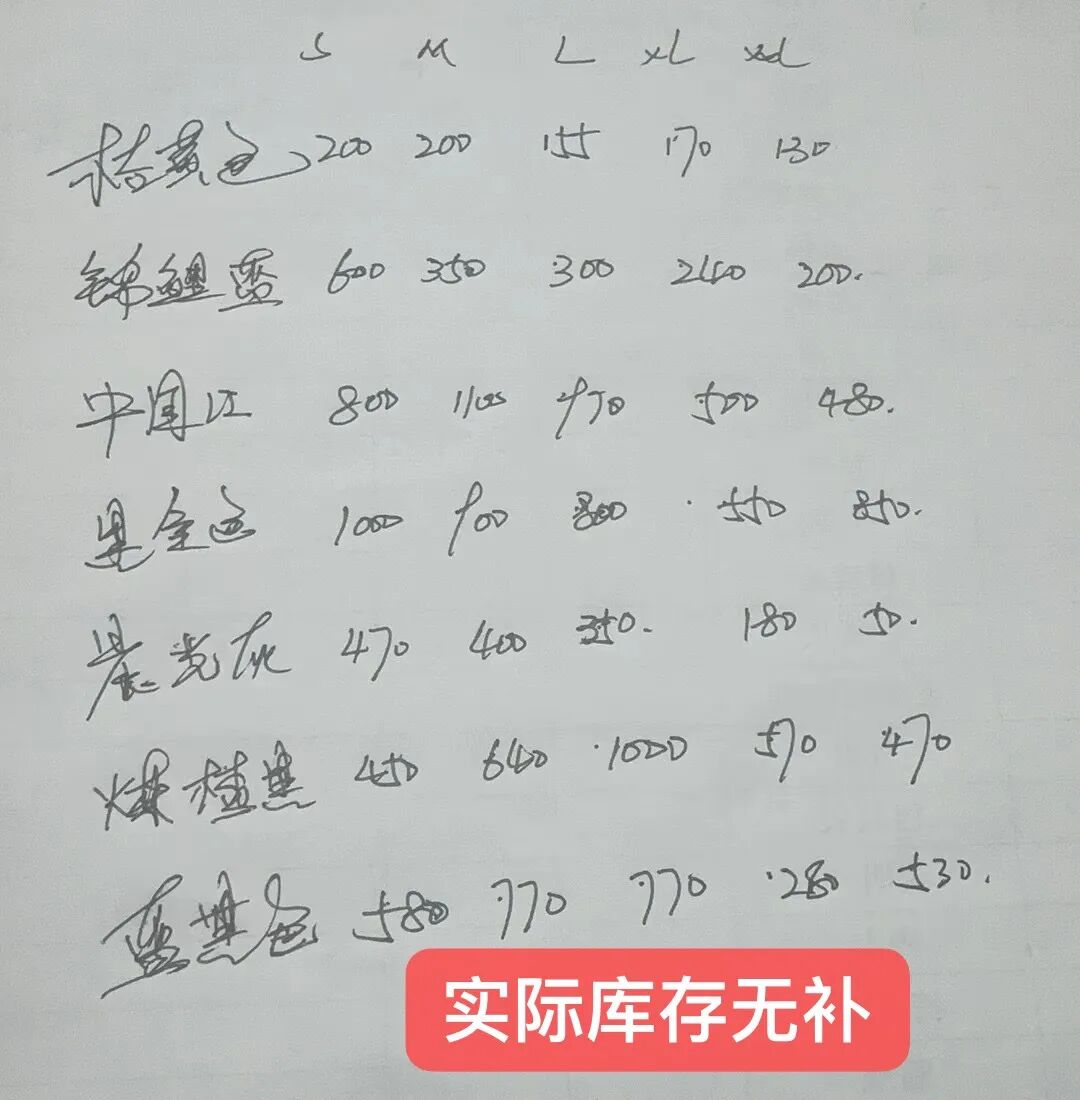 S M L XL XXL
桔黄色 200 200 155 170 130
锦鲤蓝 600 350 300 240 200.
中国红 800 1100 970 500 480.
黑金色 1000 900 800 550 850.
晨光灰 470 400 350. 180 50.
碳黑 450 640 1000 570 470
蓝黑色 580 770 770 280 530.
实际库存无补